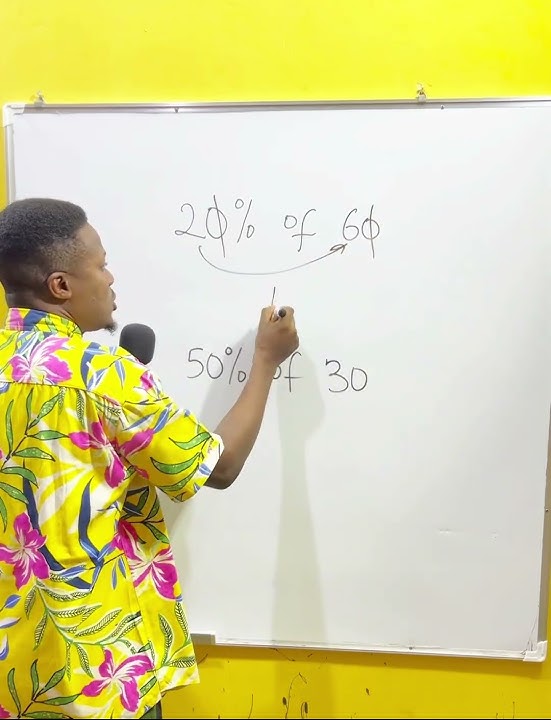 20% of 60
1
50% of 30